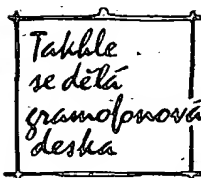 Takhle
se dělá
gramofonová
deska